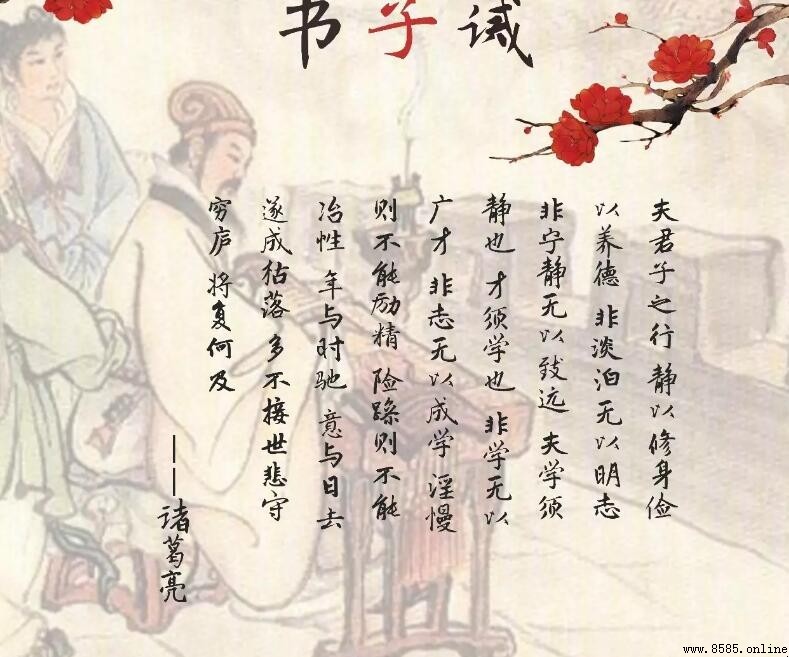 诫子书
夫君子之行 静以修身俭
以养德 非淡泊无以明志
非宁静无以致远 夫学须
静也 才须学也 非学无以
广才 非志无以成学 淫慢
则不能励精 险躁则不能
冶性 年与时驰 意与日去
遂成枯落 多不接世悲守
穷庐 将复何及
——诸葛亮
www.8585.online